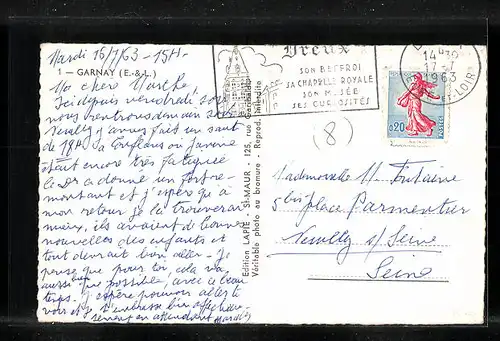 Mardi 16/7/63 - 15H-
1 - GARNAY (E.-&-L.)
Ma chère Marthe,
Ici depuis vendredi, nous
nous rentrons demain soir
Neuilly j'avais fait un saut
de 18H à Conflans où Jeanne
était encore très fatiguée
le Dr a donné un fort re-
montant et j'espère qu'à
mon retour je la trouverai
mieux, ils avaient de bonnes
nouvelles des enfants et
tout devrait bien aller - Je
pense que pour toi, cela va
aussi bien que possible, avec ce beau
temps. J'espère pouvoir aller te
voir et je t'embrasse bien affectueu-
sement en attendant
Edition LAPIE - St-MAUR - 125, rue Garibaldi
Véritable photo au bromure - Reprod. Interdite
Dreux
SON BEFFROI
SA CHAPELLE ROYALE
SON MUSÉE
SES CURIOSITÉS
14 H 30
17-7
1963
ET-LOIR
0,20
POSTES
(8)
Mademoiselle M. Fontaine
5bis place Parmentier
Neuilly s/ Seine
Seine